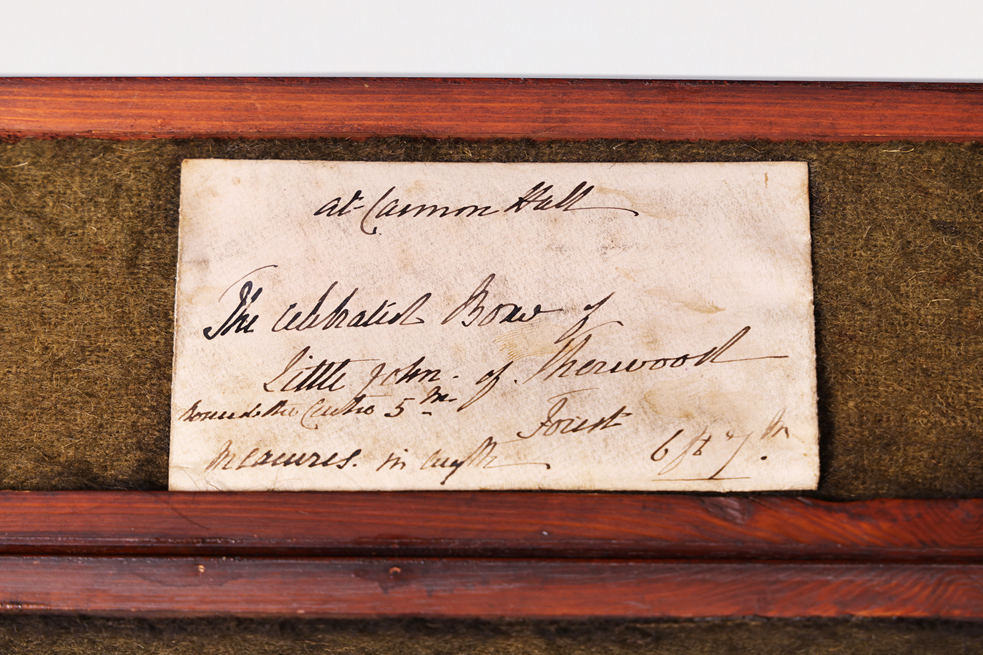 at Cannon Hall
The Celebrated Bow of
Little John. of Sherwood
Round the Centre 5 In.
Forest
Measures. in length 6 ft 7 In.